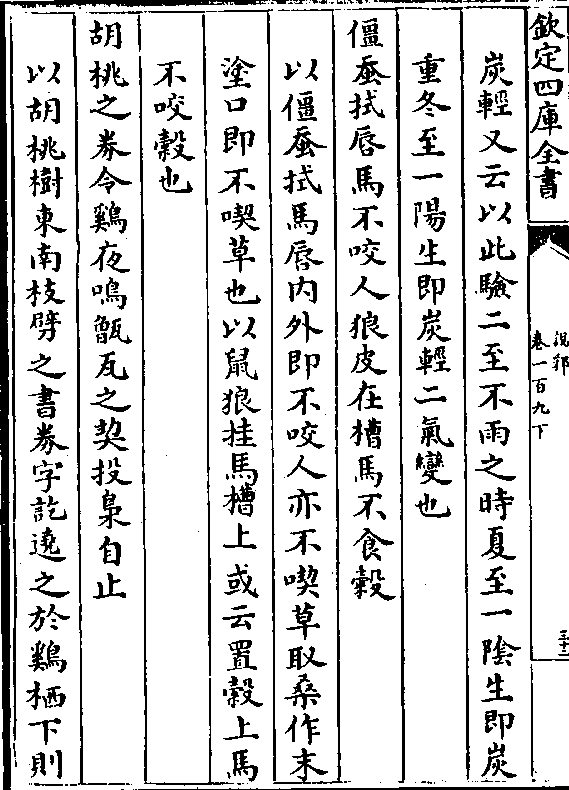 欽定四庫全書
說郛
卷一百九下
三十二
炭輕又云以此驗二至不雨之時夏至一陰生即炭
重冬至一陽生即炭輕二氣變也
僵蚕拭唇馬不咬人狼皮在槽馬不食榖
以僵蚕拭馬唇内外即不咬人亦不喫草取桑作末
塗口即不喫草也以鼠狼挂馬槽上或云置榖上馬
不咬榖也
胡桃之券令鷄夜鳴甑瓦之契投梟自止
以胡桃樹東南枝劈之書券字訖遶之於鷄栖下則